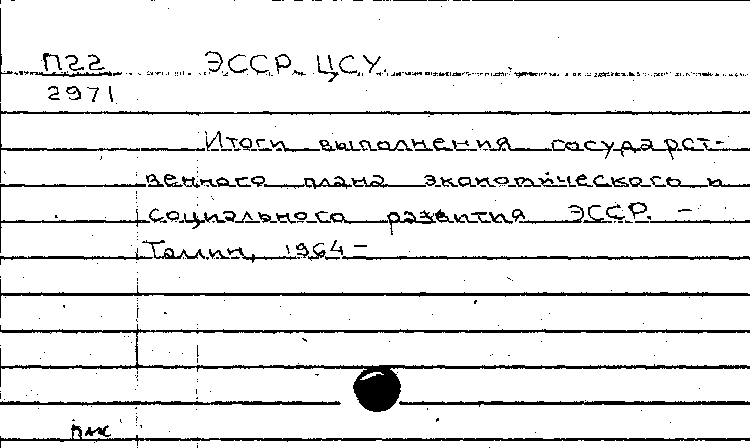 П22 ЭССР. ЦСУ.
2971
Итоги выполнения государст-
венного плана экономического и
социального развития ЭССР. —
Таллин, 1964—